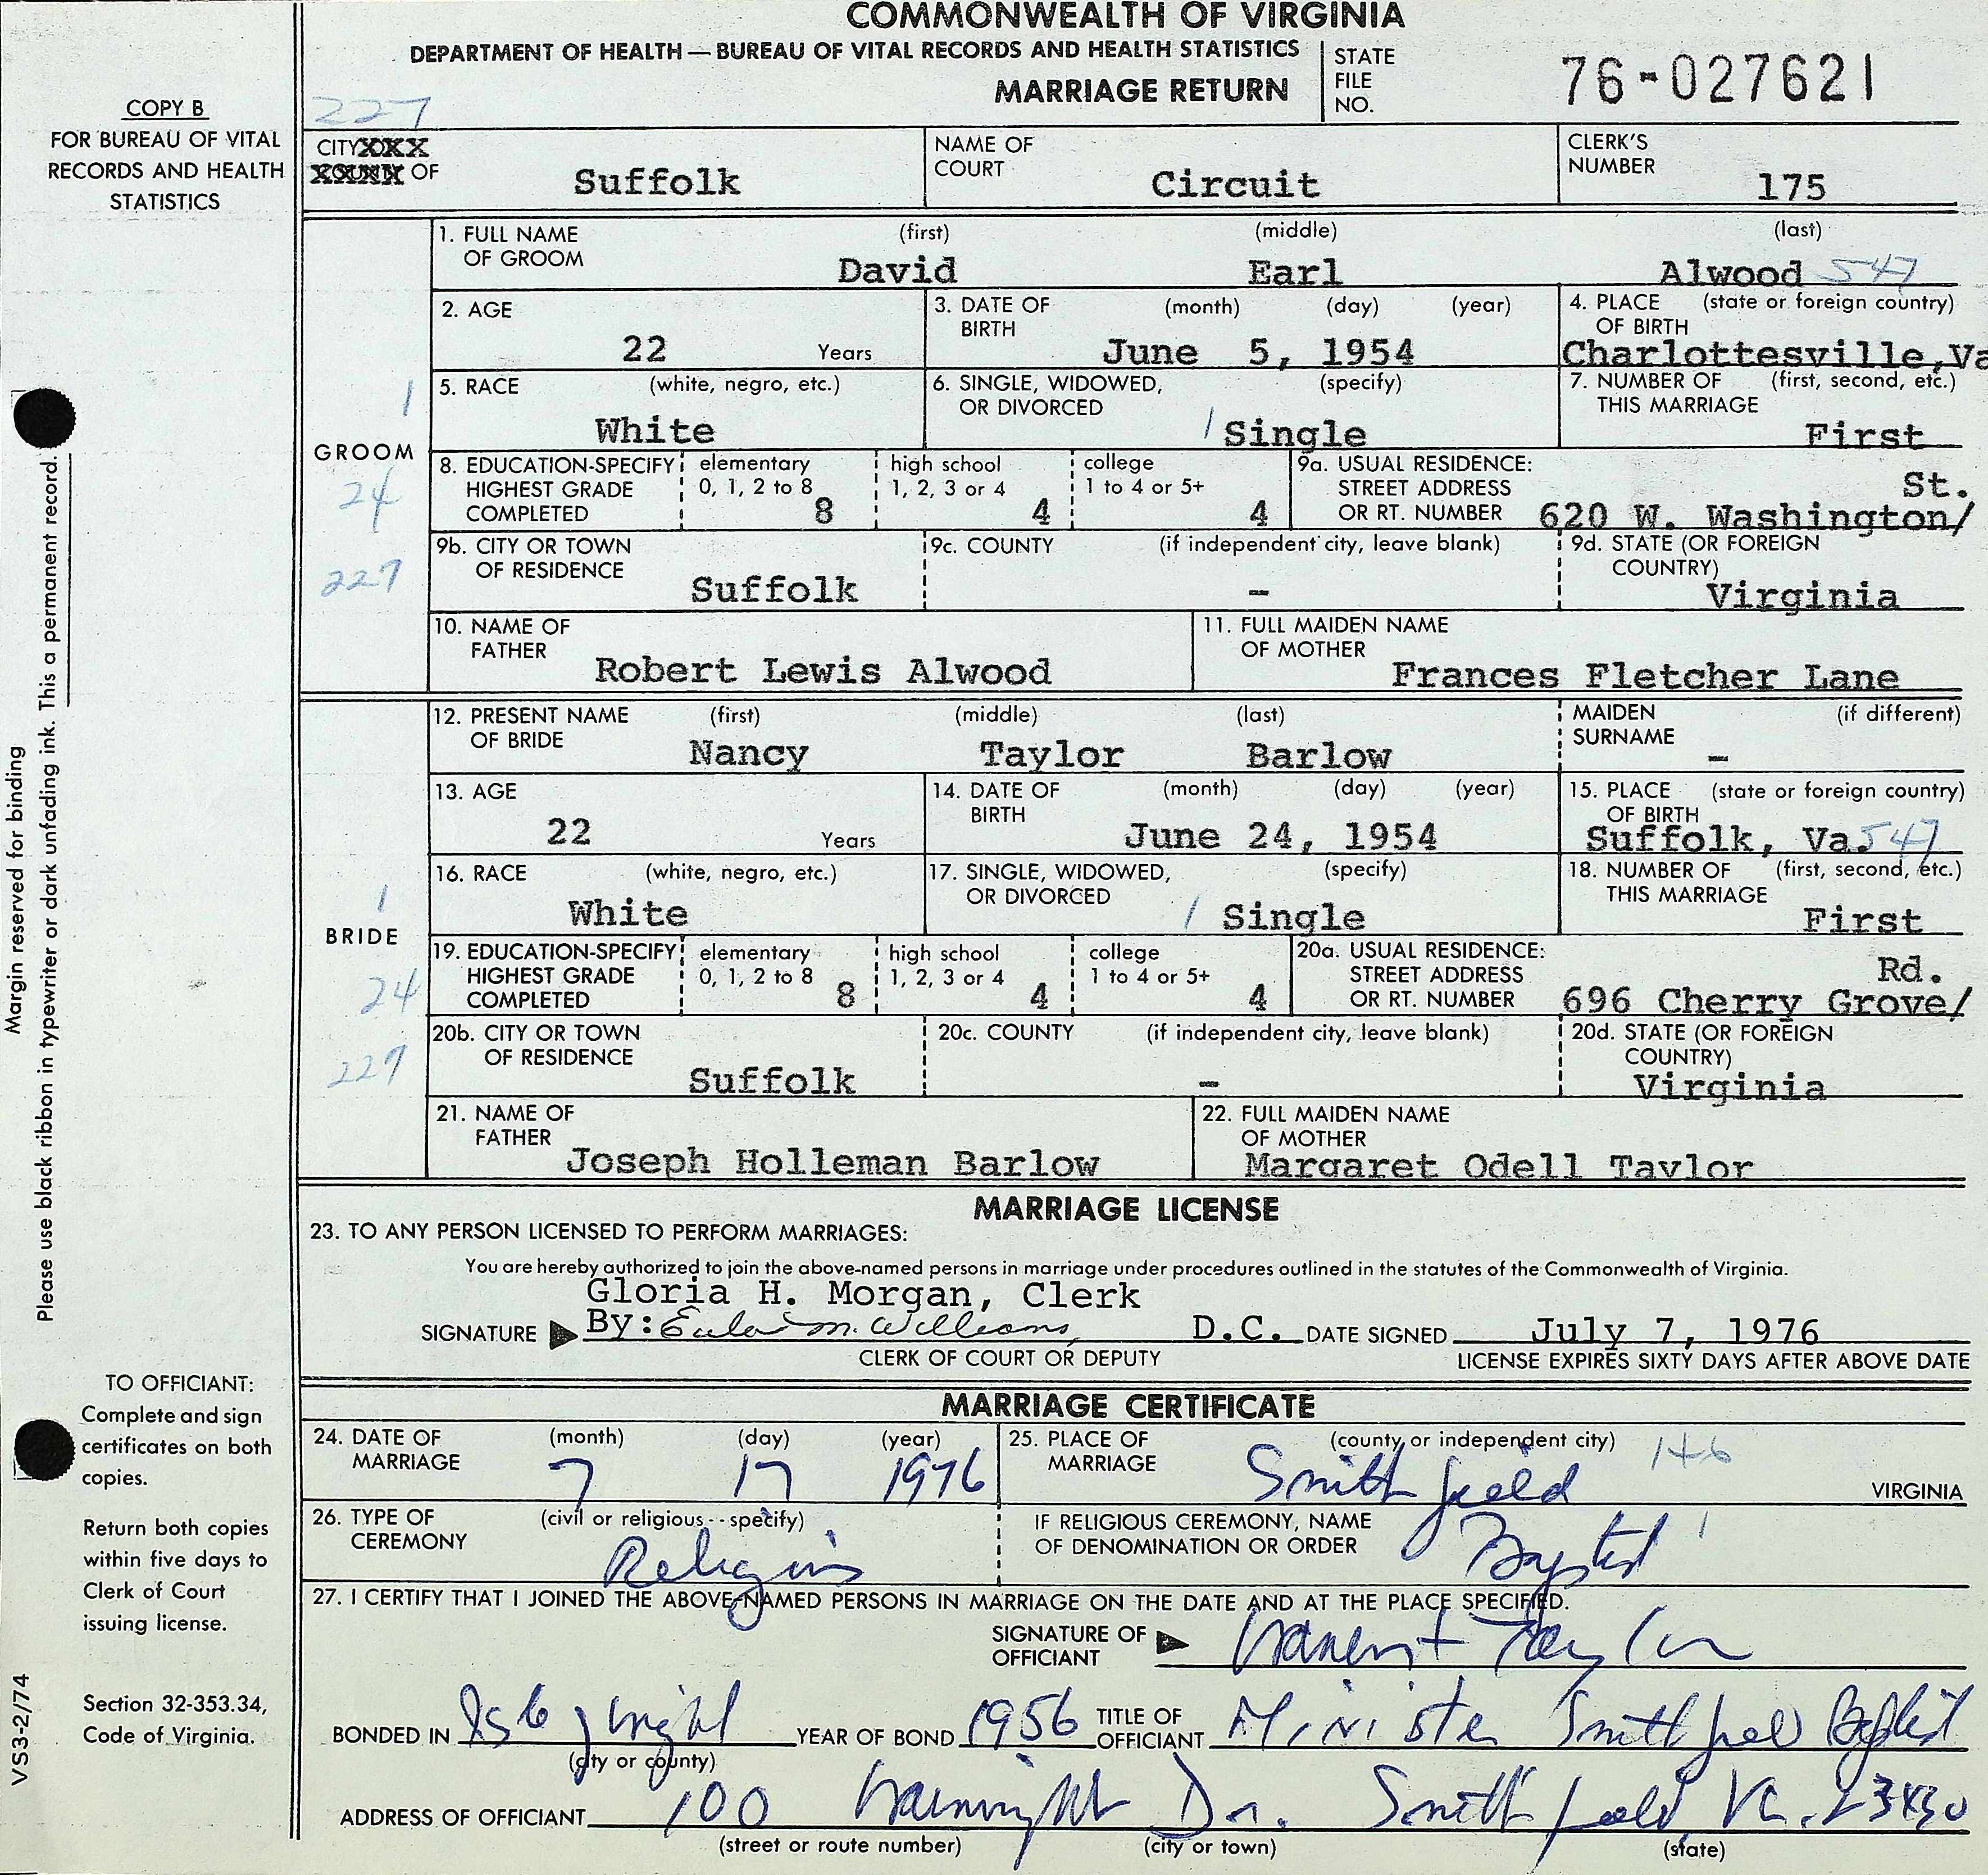 COMMONWEALTH OF VIRGINIA
DEPARTMENT OF HEALTH — BUREAU OF VITAL RECORDS AND HEALTH STATISTICS
MARRIAGE RETURN
STATE FILE NO. 76-027621
COPY B
FOR BUREAU OF VITAL
RECORDS AND HEALTH
STATISTICS
227
CITY XXX
XXXXXX OF Suffolk
NAME OF COURT Circuit
CLERK'S NUMBER 175
GROOM
1
24
227
1. FULL NAME OF GROOM (first) (middle) (last)
David Earl Alwood 547
2. AGE 22 Years
3. DATE OF BIRTH (month) (day) (year) June 5, 1954
4. PLACE OF BIRTH (state or foreign country) Charlottesville, Va
5. RACE (white, negro, etc.) White
6. SINGLE, WIDOWED, OR DIVORCED (specify) 1 Single
7. NUMBER OF THIS MARRIAGE (first, second, etc.) First
8. EDUCATION-SPECIFY HIGHEST GRADE COMPLETED elementary 0, 1, 2 to 8 8 high school 1, 2, 3 or 4 4 college 1 to 4 or 5+ 4
9a. USUAL RESIDENCE: STREET ADDRESS OR RT. NUMBER 620 W. Washington/ St.
9b. CITY OR TOWN OF RESIDENCE Suffolk
9c. COUNTY (if independent city, leave blank) -
9d. STATE (OR FOREIGN COUNTRY) Virginia
10. NAME OF FATHER Robert Lewis Alwood
11. FULL MAIDEN NAME OF MOTHER Frances Fletcher Lane
BRIDE
1
24
227
12. PRESENT NAME OF BRIDE (first) (middle) (last) Nancy Taylor Barlow
MAIDEN SURNAME (if different) -
13. AGE 22 Years
14. DATE OF BIRTH (month) (day) (year) June 24, 1954
15. PLACE OF BIRTH (state or foreign country) Suffolk, Va. 547
16. RACE (white, negro, etc.) White
17. SINGLE, WIDOWED, OR DIVORCED (specify) 1 Single
18. NUMBER OF THIS MARRIAGE (first, second, etc.) First
19. EDUCATION-SPECIFY HIGHEST GRADE COMPLETED elementary 0, 1, 2 to 8 8 high school 1, 2, 3 or 4 4 college 1 to 4 or 5+ 4
20a. USUAL RESIDENCE: STREET ADDRESS OR RT. NUMBER 696 Cherry Grove/ Rd.
20b. CITY OR TOWN OF RESIDENCE Suffolk
20c. COUNTY (if independent city, leave blank) -
20d. STATE (OR FOREIGN COUNTRY) Virginia
21. NAME OF FATHER Joseph Holleman Barlow
22. FULL MAIDEN NAME OF MOTHER Margaret Odell Taylor
MARRIAGE LICENSE
23. TO ANY PERSON LICENSED TO PERFORM MARRIAGES:
You are hereby authorized to join the above-named persons in marriage under procedures outlined in the statutes of the Commonwealth of Virginia.
Gloria H. Morgan, Clerk
SIGNATURE By: Eula M. Williams, D.C. DATE SIGNED July 7, 1976
CLERK OF COURT OR DEPUTY LICENSE EXPIRES SIXTY DAYS AFTER ABOVE DATE
MARRIAGE CERTIFICATE
24. DATE OF MARRIAGE (month) (day) (year) 7 17 1976
25. PLACE OF MARRIAGE (county or independent city) Smithfield 146 VIRGINIA
26. TYPE OF CEREMONY (civil or religious--specify) Religious
IF RELIGIOUS CEREMONY, NAME OF DENOMINATION OR ORDER Baptist 1
27. I CERTIFY THAT I JOINED THE ABOVE-NAMED PERSONS IN MARRIAGE ON THE DATE AND AT THE PLACE SPECIFIED.
SIGNATURE OF OFFICIANT Taylor
BONDED IN Isle of Wight YEAR OF BOND 1956 TITLE OF OFFICIANT Minister Smithfield Baptist
(city or county)
ADDRESS OF OFFICIANT 100 Dr. Smithfield, Va. 23430
(street or route number) (city or town) (state)
Margin reserved for binding
Please use black ribbon in typewriter or dark unfading ink. This a permanent record.
TO OFFICIANT:
Complete and sign
certificates on both
copies.
Return both copies
within five days to
Clerk of Court
issuing license.
Section 32-353.34,
Code of Virginia.
VS3-2/74